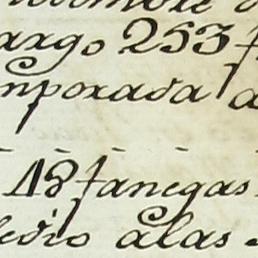 argo 253
mporada
18 fanegas
edio alas